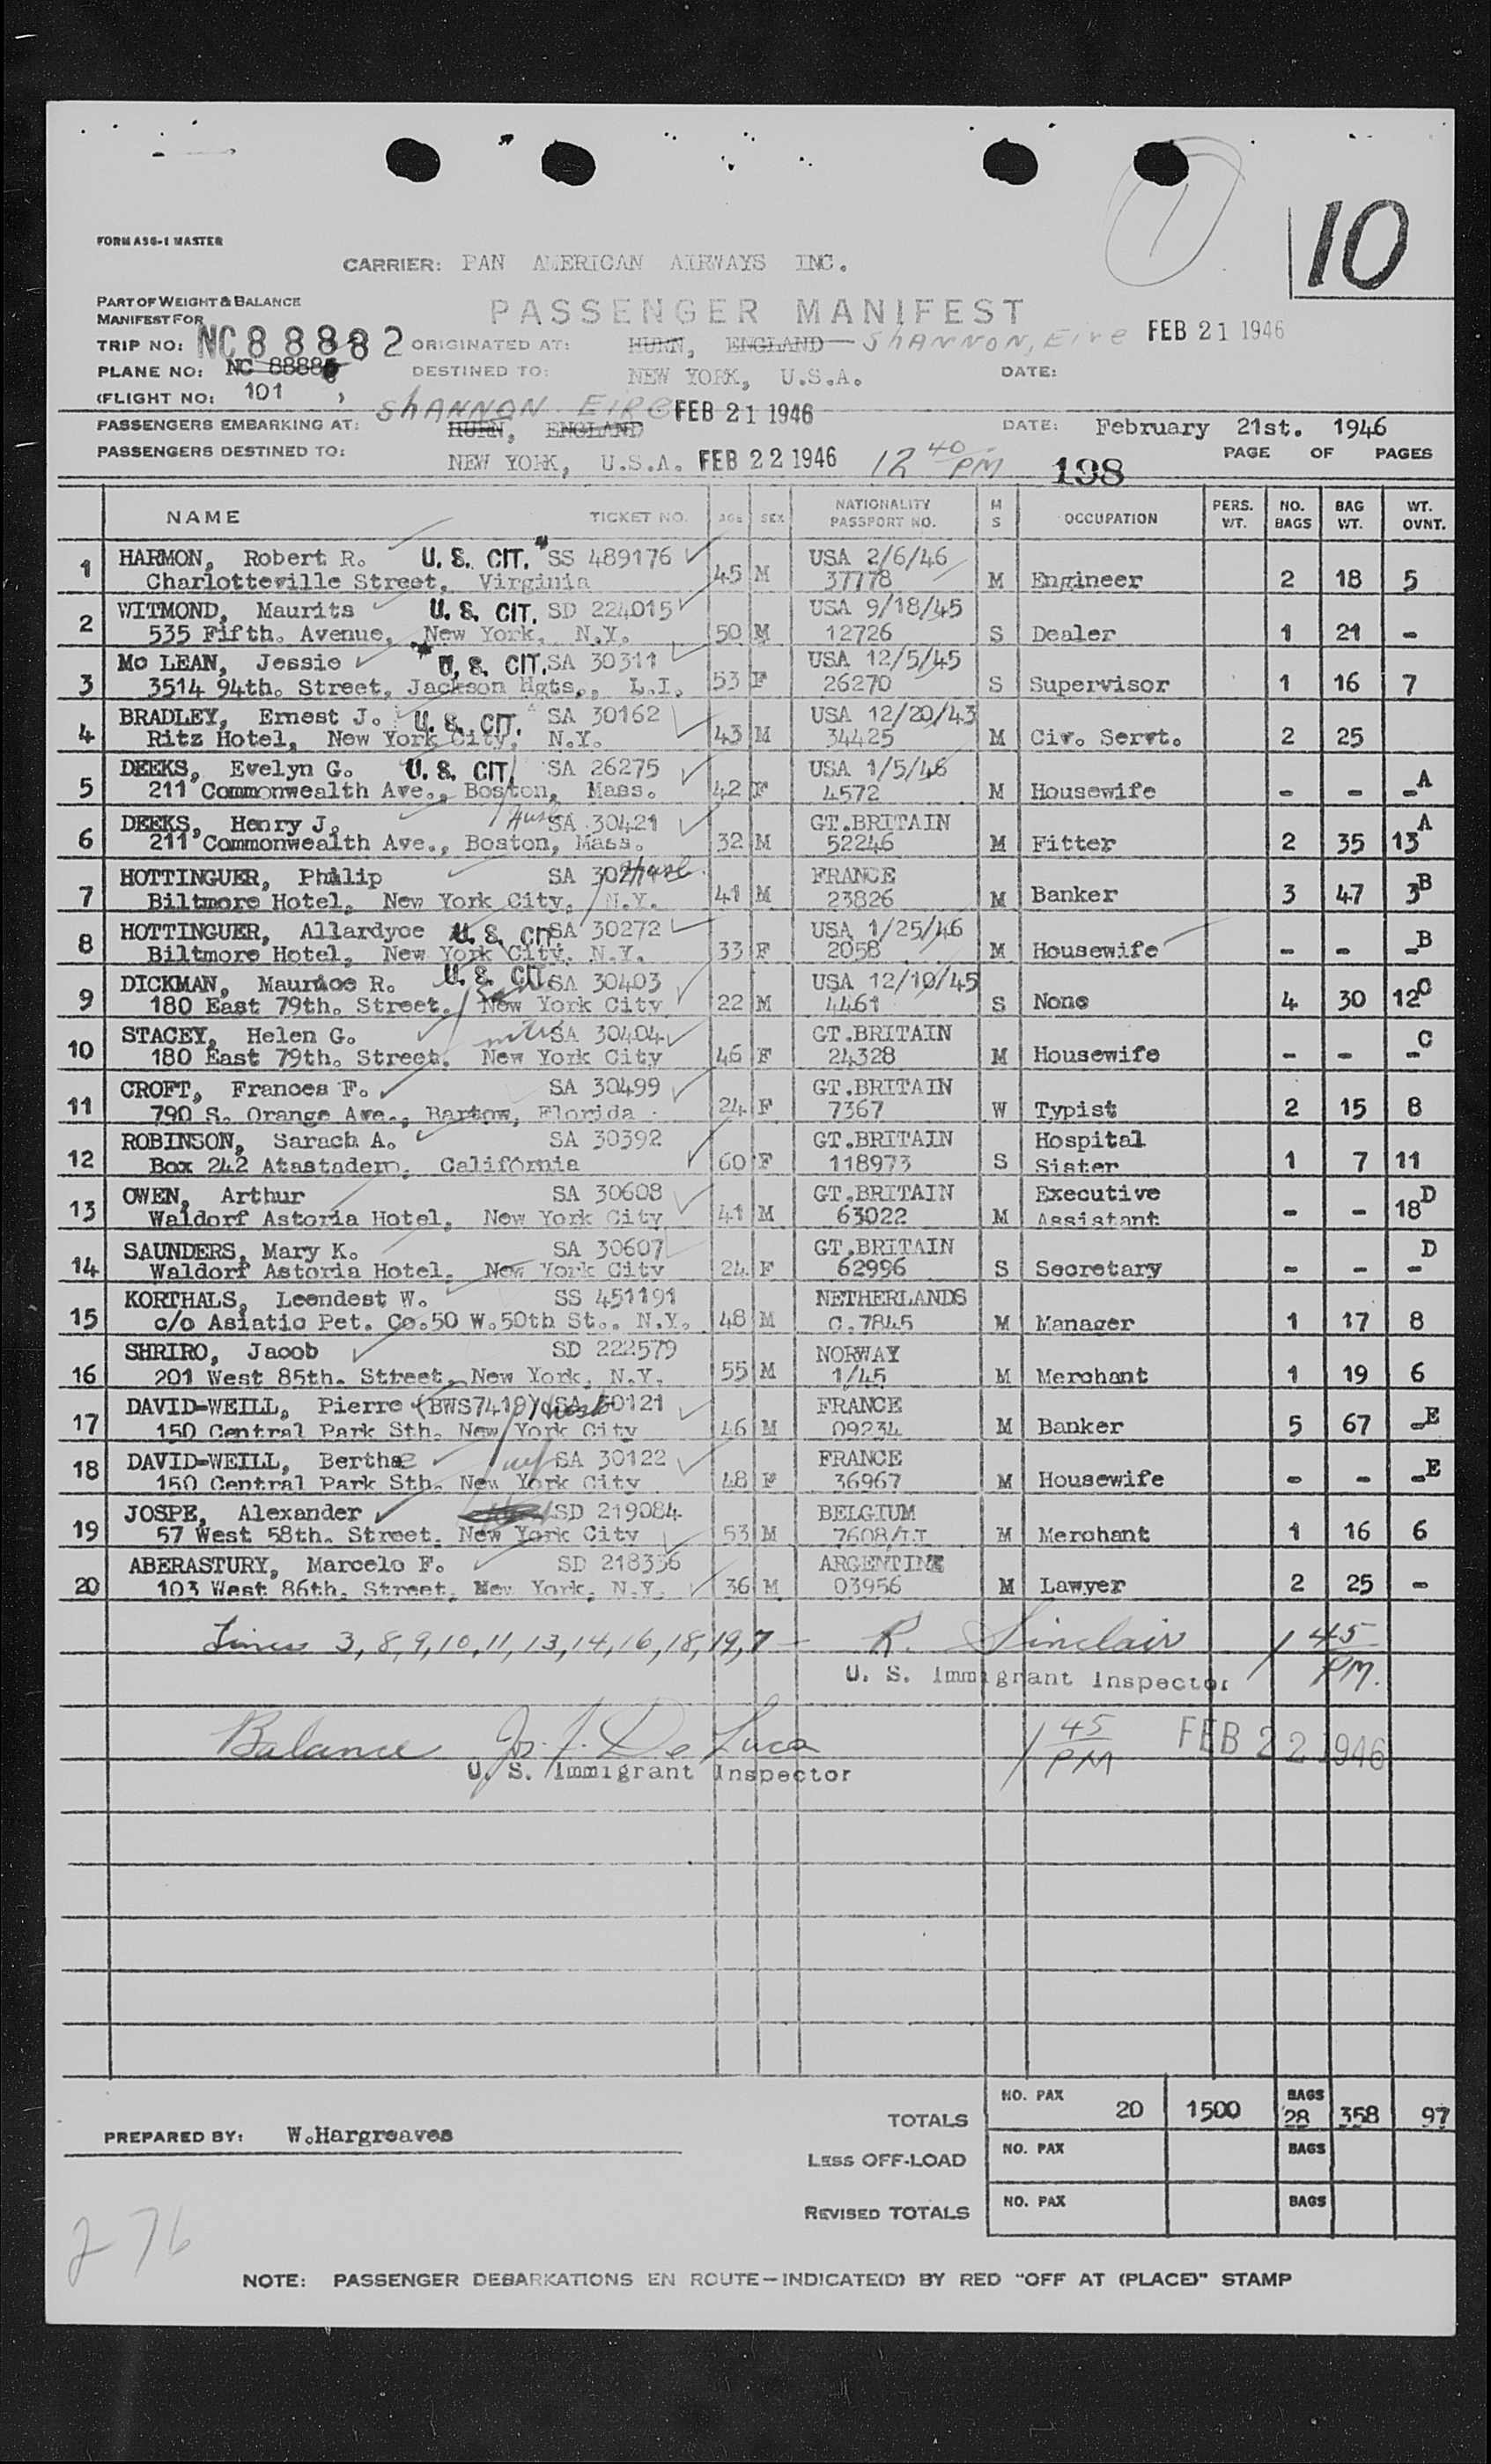 1
10
FORM A36-1 MASTER
CARRIER: PAN AMERICAN AIRWAYS INC.
PART OF WEIGHT & BALANCE
MANIFEST FOR
PASSENGER MANIFEST
TRIP NO: NC 88882 ORIGINATED AT: HURN, ENGLAND SHANNON, Eire FEB 21 1946
PLANE NO: NC 8888 DESTINED TO: NEW YORK, U.S.A. DATE:
(FLIGHT NO: 101 )
SHANNON EIRE FEB 21 1946
PASSENGERS EMBARKING AT: HURN, ENGLAND DATE: February 21st. 1946
PASSENGERS DESTINED TO: NEW YORK, U.S.A. FEB 22 1946 12 40 PM 198 PAGE OF PAGES
NAME TICKET NO. AGE SEX NATIONALITY PASSPORT NO. M S OCCUPATION PERS. WT. NO. BAGS BAG WT. WT. OVNT.
1 HARMON, Robert R. U. S. CIT. SS 489176 45 M USA 2/6/46 M Engineer 2 18 5
Charlotteville Street, Virginia 37778
2 WITMOND, Maurits U. S. CIT. SD 224015 50 M USA 9/18/45 S Dealer 1 21 -
535 Fifth. Avenue, New York, N.Y. 12726
3 Mc LEAN, Jessie U. S. CIT. SA 30311 53 F USA 12/5/45 S Supervisor 1 16 7
3514 94th. Street, Jackson Hgts., L.I. 26270
4 BRADLEY, Ernest J. U. S. CIT. SA 30162 43 M USA 12/20/43 M Civ. Servt. 2 25
Ritz Hotel, New York City, N.Y. 34425
5 DEEKS, Evelyn G. U. S. CIT. SA 26275 42 F USA 1/5/46 M Housewife - - - A
211 Commonwealth Ave., Boston, Mass. 4572
6 DEEKS, Henry J. Husb SA 30421 32 M GT.BRITAIN M Fitter 2 35 13 A
211 Commonwealth Ave., Boston, Mass. 52246
7 HOTTINGUER, Philip SA 41 M FRANCE M Banker 3 47 3 B
Biltmore Hotel, New York City, N.Y. 23826
8 HOTTINGUER, Allardyce U. S. CIT. SA 30272 33 F USA 1/25/46 M Housewife - - - B
Biltmore Hotel, New York City, N.Y. 2058
9 DICKMAN, Maurice R. U. S. CIT. SA 30403 22 M USA 12/10/45 S None 4 30 12 C
180 East 79th. Street. New York City 4461
10 STACEY, Helen G. SA 30404 46 F GT.BRITAIN M Housewife - - - C
180 East 79th. Street. New York City 24328
11 CROFT, Frances F. SA 30499 24 F GT.BRITAIN W Typist 2 15 8
790 S. Orange Ave., Bartow, Florida 7367
12 ROBINSON, Sarach A. SA 30392 60 F GT.BRITAIN S Hospital Sister 1 7 11
Box 242 Atastadero, California 118973
13 OWEN, Arthur SA 30608 41 M GT.BRITAIN M Executive Assistant - - 18 D
Waldorf Astoria Hotel, New York City 63022
14 SAUNDERS, Mary K. SA 30607 24 F GT.BRITAIN S Secretary - - - D
Waldorf Astoria Hotel. New York City 62996
15 KORTHALS, Leendest W. SS 451191 48 M NETHERLANDS M Manager 1 17 8
c/o Asiatic Pet. Co.50 W.50th St., N.Y. C.7845
16 SHRIRO, Jacob SD 222579 55 M NORWAY M Merchant 1 19 6
201 West 85th. Street, New York, N.Y. 1/45
17 DAVID-WEILL, Pierre (BWS7419) SA 30121 46 M FRANCE M Banker 5 67 - E
150 Central Park Sth. New York City 09234
18 DAVID-WEILL, Berthe wf SA 30122 48 F FRANCE M Housewife - - - E
150 Central Park Sth. New York City 36967
19 JOSPE, Alexander SD 219084 53 M BELGIUM M Merchant 1 16 6
57 West 58th. Street. New York City 7608/LI
20 ABERASTURY, Marcelo F. SD 218336 36 M ARGENTINE M Lawyer 2 25 -
103 West 86th. Street, New York, N.Y. 03956
Lines 3, 8, 9, 10, 11, 13, 14, 16, 18, 19, 7 - R. Sinclair 1 45 PM.
U. S. Immigrant Inspector
Balance Jos. J. De Luca 1 45 PM FEB 22 1946
U. S. Immigrant Inspector
TOTALS NO. PAX 20 1500 BAGS 28 358 97
PREPARED BY: W.Hargreaves
LESS OFF-LOAD NO. PAX BAGS
REVISED TOTALS NO. PAX BAGS
2 76
NOTE: PASSENGER DEBARKATIONS EN ROUTE—INDICATE(D) BY RED "OFF AT (PLACE)" STAMP